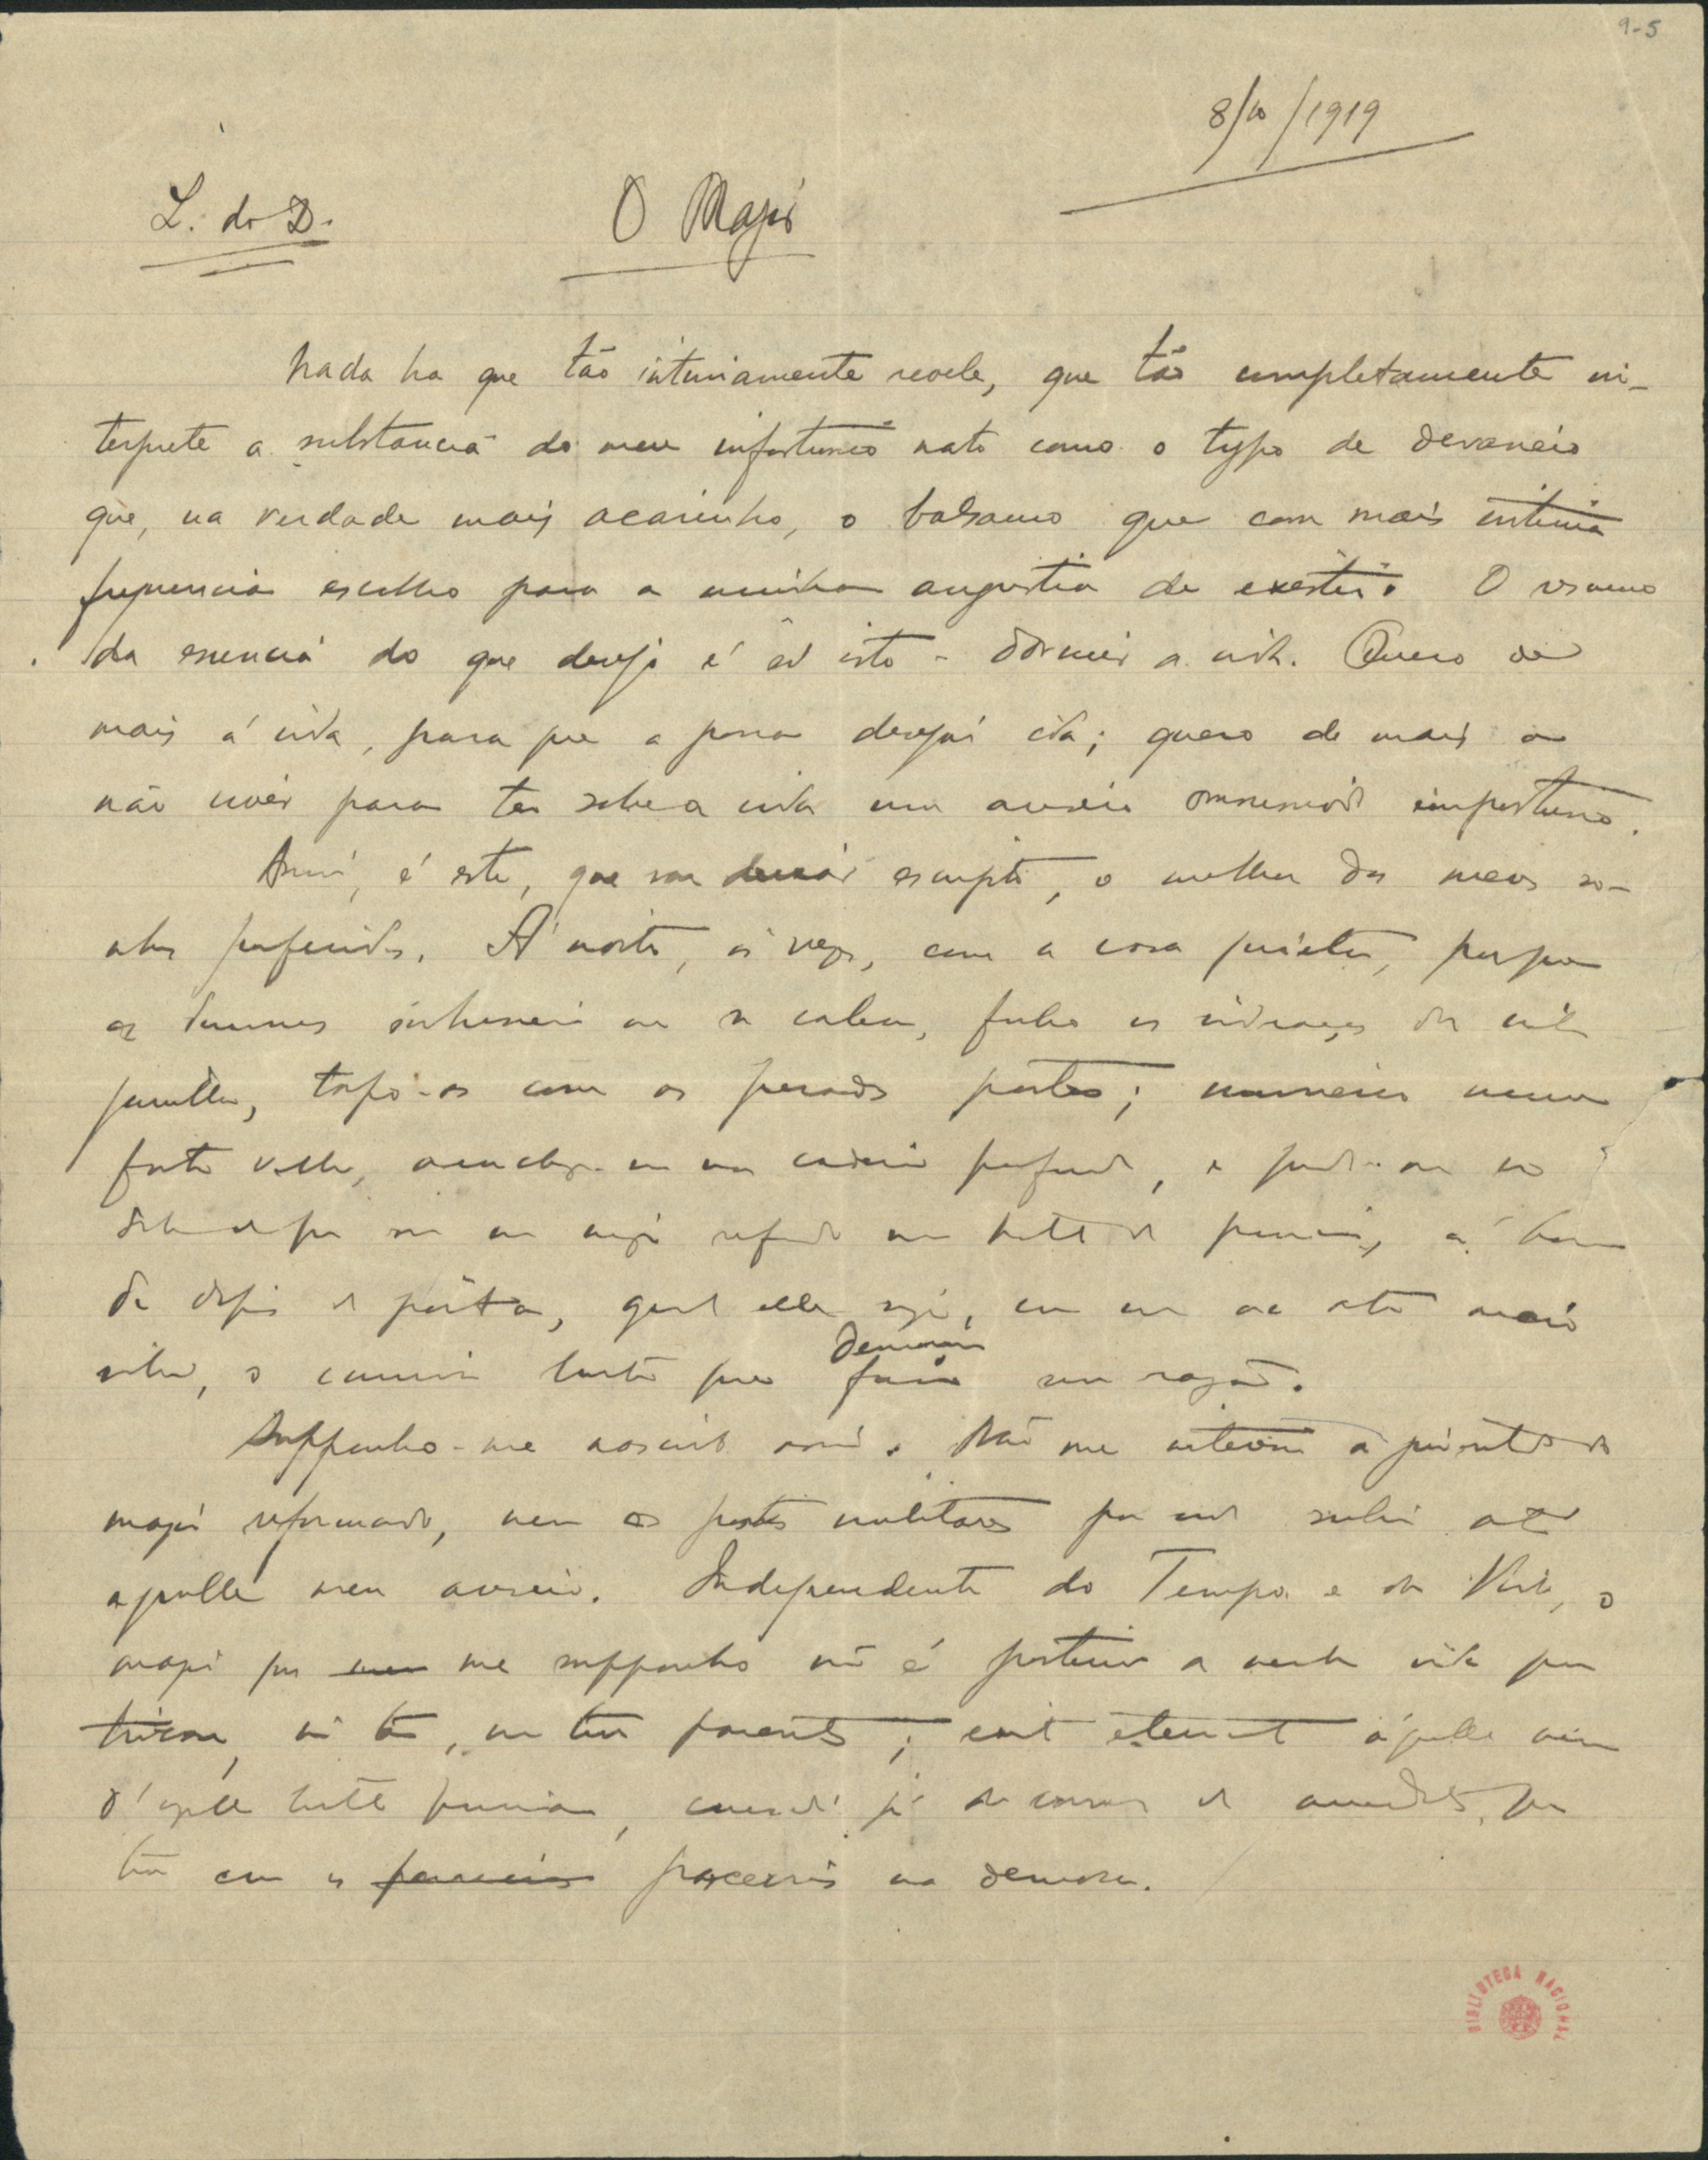 9-5
8/10/1919
L. do D.
O Major
Nada ha que tão intimamente revele, que tão completamente in-
terprete a substancia do meu infortunio nato como o typo de devaneio
que, na verdade mais acarinho, o balsamo que com mais intima
frequencia escolho para a minha angustia de existir. O resumo
da essencia do que desejo é só isto - dormir a vida. Quero de
mais á vida, para que a possa desejar ida; quero de mais a
não viver para ter sobre a vida um anseio importuno.
Assim, é este, que vou deixar escripto, o melhor dos meus so-
nhos preferidos. Á noite, ás vezes, com a casa quieta, porque
os sahem ou se calam, fecho as vidraças da
janella, tapo-as com as pesadas portas;
fato velho, aconchego-me na cadeira profunda, e prendo-me no
sonho de que sou um major reformado num hotel de provincia, á hora
de depois de jantar, quando elle seja, com um ou outro mais
sobrio, o conviva lento que demora
fica sem razão.
Supponho-me nascido assim. Não me interessa a juventude do
major reformado, nem os postos militares por onde subiu até
aquelle meu anseio. Independente do Tempo e da Vida, o
major que me supponho não é posterior a nenhuma vida que
tivesse, não tem, nem teve parentes; existe eternamente áquella mesa
d'aquelle hotel provinciano, cansado já de conversas de anecdotas que
teve com os parceiros parceiros na demora.
BIBLIOTECA NACIONAL